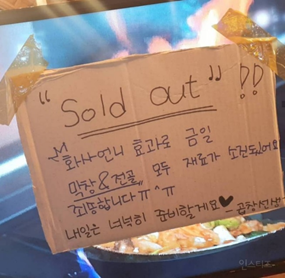 "Sold out" !!
화사언니 효과로 금일
막창&전골 모두 재료가 소진되었어요
죄송합니다ㅠ^ㅠ
내일은 넉넉히 준비할게요♥ - 곱창선생
인스티즈